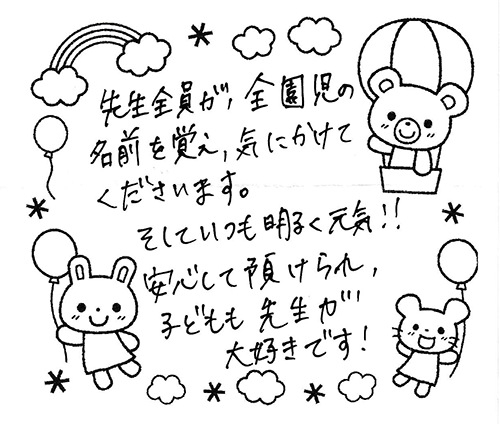 先生全員が、全園児の
名前を覚え、気にかけて
くださいます。
そしていつも明るく元気!!
安心して預けられ、
子どもも先生が
大好きです!